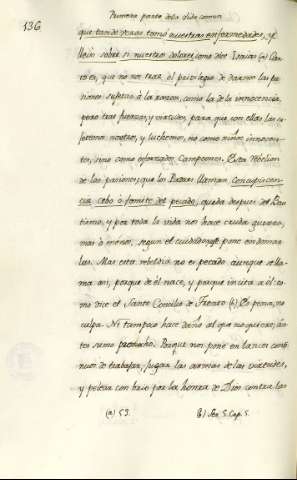 136
Primera parte de la vida comun
que tan de veras tomó nuestras enfermedades, y
llevó sobre sí nuestros dolores, como dice Isaias (a) Por
eso es, que no nos trae el privilegio de darnos las pa
siones sujetas á la razon, como la de la innocencia,
pero trae fuerzas, y virtudes, para que con ellas las su
getemos nosotros, y luchemos, no como niños innocen
tes, sino como esforzados Campeones. Esta rebelion
de las pasiones, que los Padres llaman, Concupiscen
cia, cebo ó fomite del pecado, queda despues del Bau
tismo, y por toda la vida nos hace cruda guerra,
mas ó menos, segun el cuidado que se pone en domar
las. Mas esta rebeldia no es pecado aunque se lla
ma asi, porque de él nace, y porque incita a él: co
mo dice el Santo Concilio de Trento (b). Es pena, no
culpa. Ni tampoco hace daño al que no quiere; án
tes sumo provecho. Porque nos pone en lances conti
nuos de trabajar, jugar las armas de las virtudes,
y pelear con brio por la honra de Dios contra los
(a) 53. (b) Ses. 5. Cap. 5.